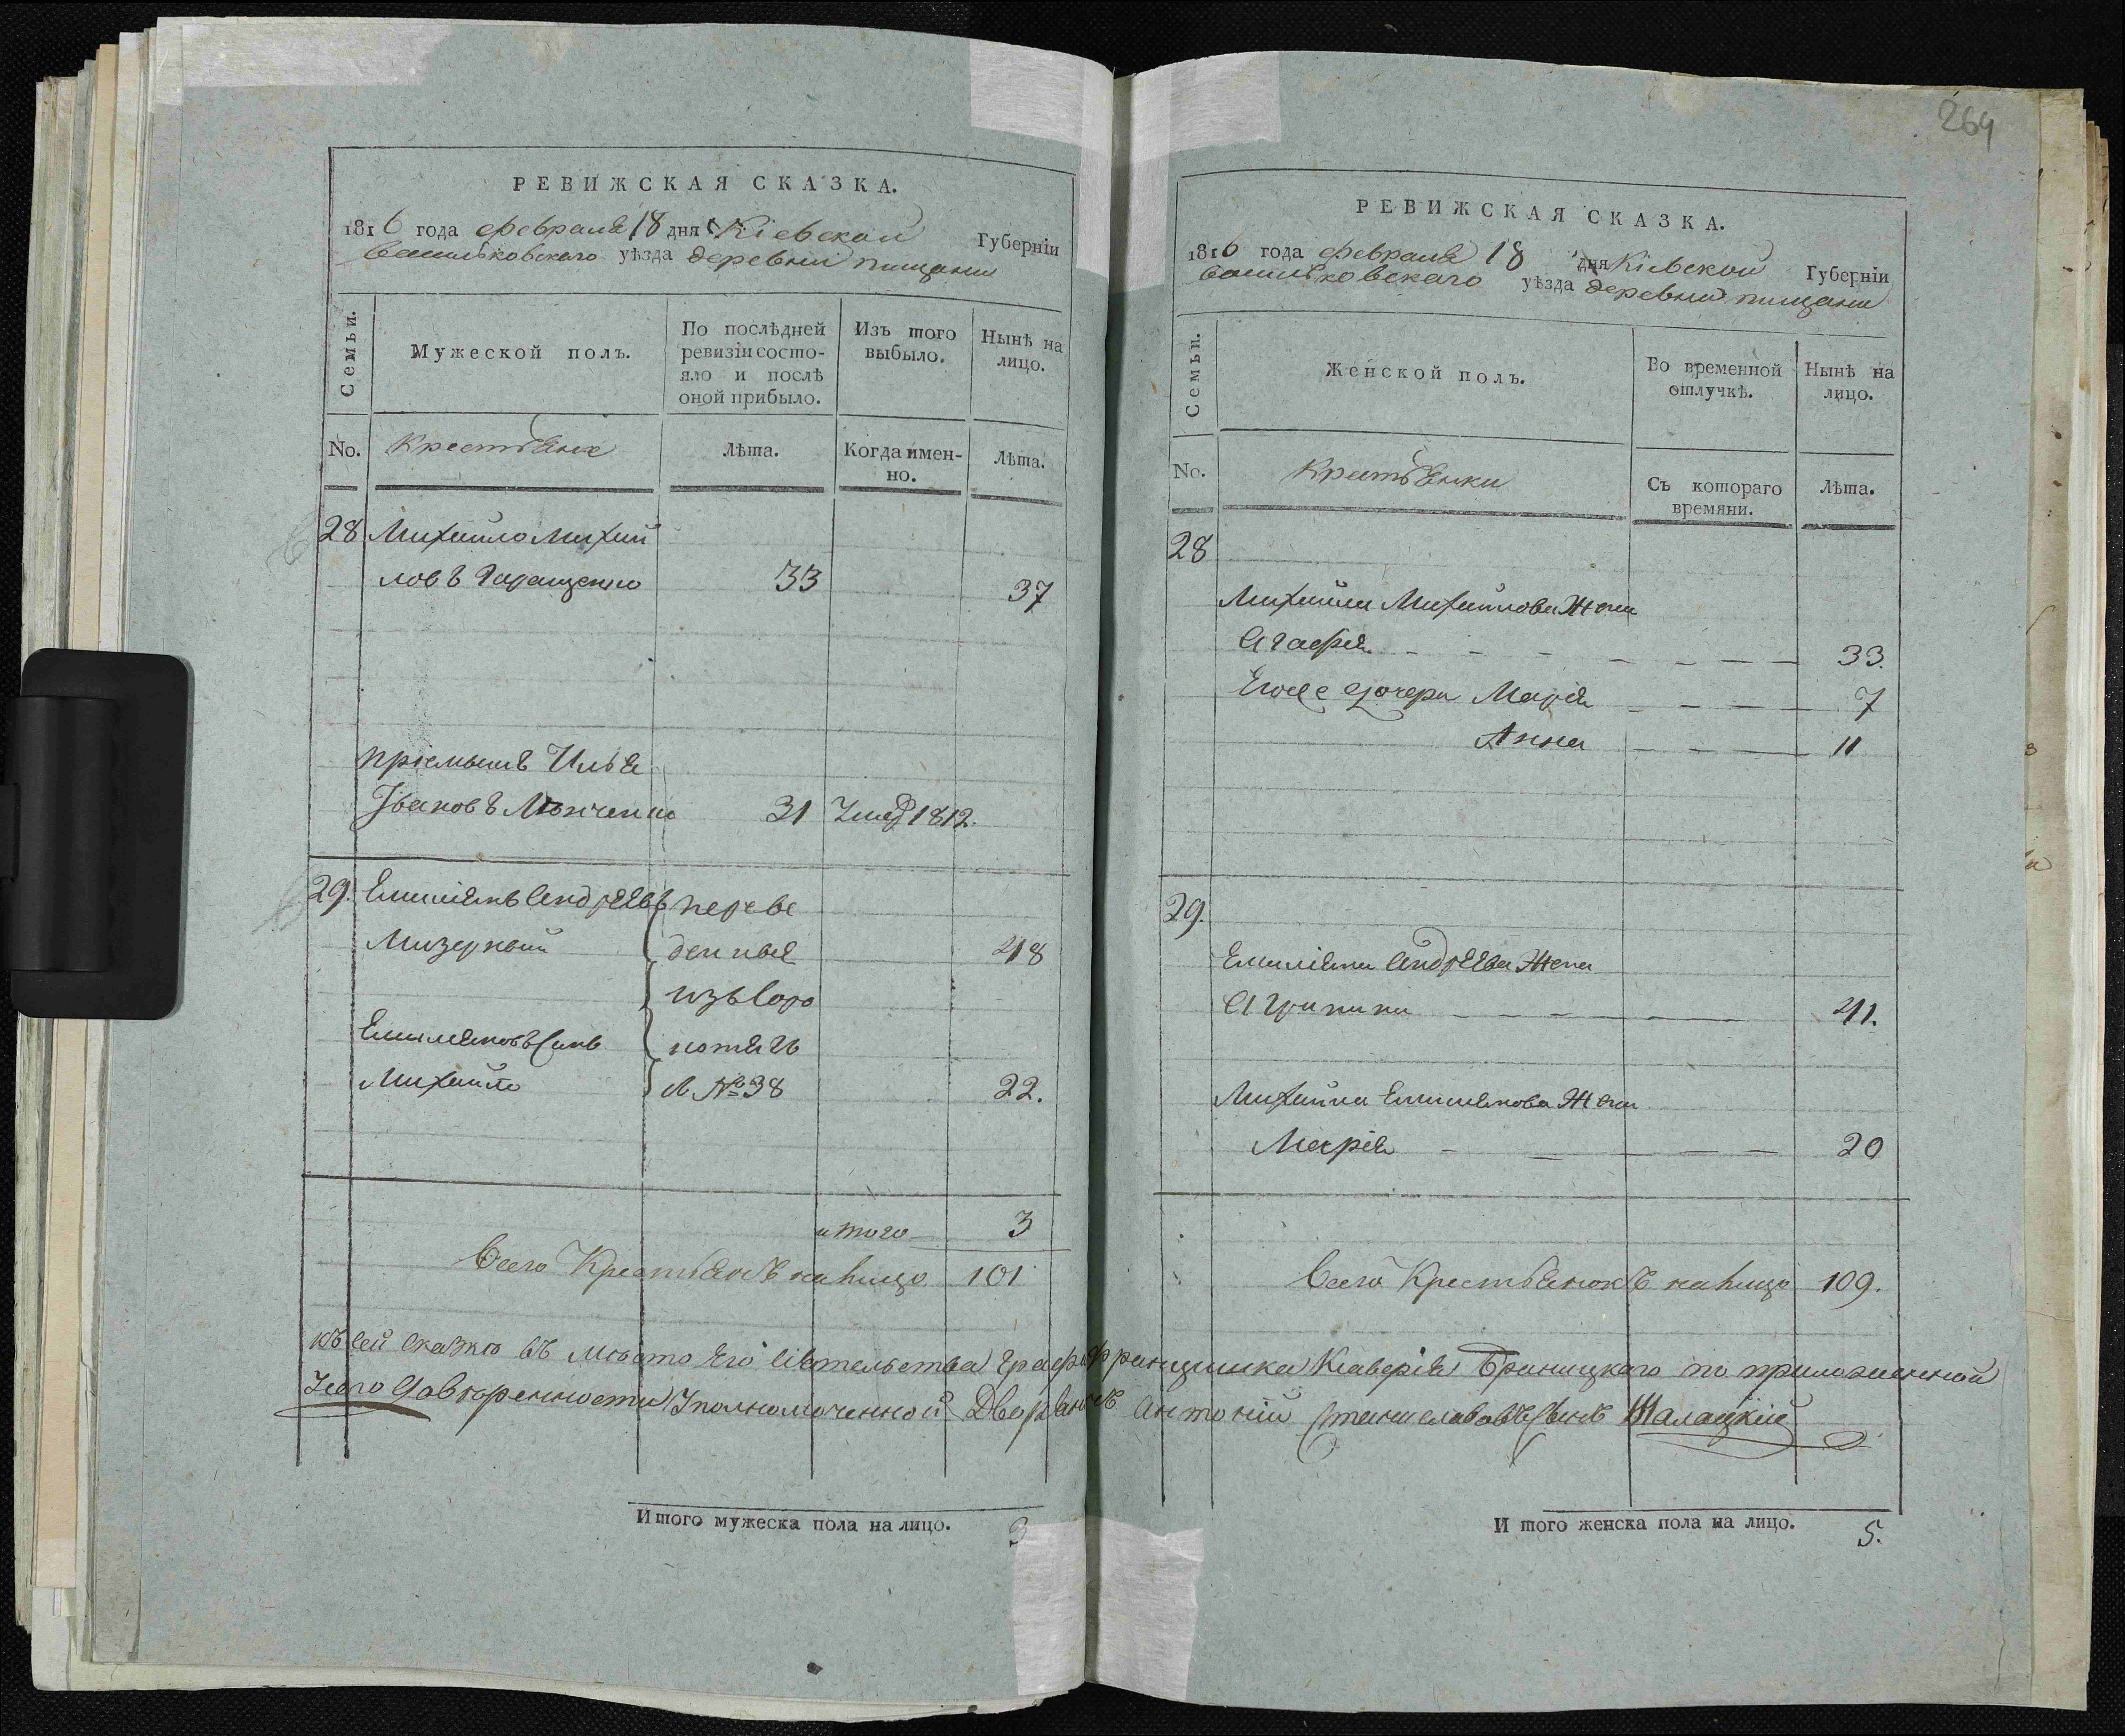 264
РЕВИЖСКАЯ СКАЗКА.
1816 года февраля 18 дня Кіевской Губерніи
васильковского уѣзда деревни пищани
Семьи.
Мужеской полъ.
По послѣдней ревизіи состо-
яло и послѣ оной прибыло.
Изъ того выбыло.
Нынѣ на лицо.
No. Крестьяне
Лѣта.
Когда имен-
но.
Лѣта.
28 Михайло Михай
ловъ Таращенко 33 37
пріемышъ Илья
Івановъ 31 Умер 1812.
29. Емиліянъ Андрѣевъ переве
Мизерный денныя 48
изъ Соро
Емиляновъ Сынъ котягъ
Михайло № 38 22.
итого 3
Всего Крестьянъ налицо 101
Итого мужеска пола на лицо. 3
РЕВИЖСКАЯ СКАЗКА.
1816 года февраля 18 дня Кіевской Губерніи
васильковского уѣзда деревни пищани
Семьи.
Женской полъ.
Во временной отлучкѣ.
Нынѣ на лицо.
No. Крестьянки
Съ котораго времяни.
Лѣта.
28
Михайла Михайлова Жена
Агафія 33.
Егоже дочери Марія 7
Анна 11
29.
Емиліяна Андрѣева Жена
Агрипина 41.
Михайла Емилянова Жена
Марія 20
Всего Крестьянокъ налицо 109.
къ сей сказкѣ въ мѣсто Его Сіятельства Графа Францишка Ксаверія Браницкаго по приложенной
у сего довѣренности Уполномоченной Дворянинъ Антоній Станиславовъ Сынъ Шалацкій
И того женска пола на лицо. 5.